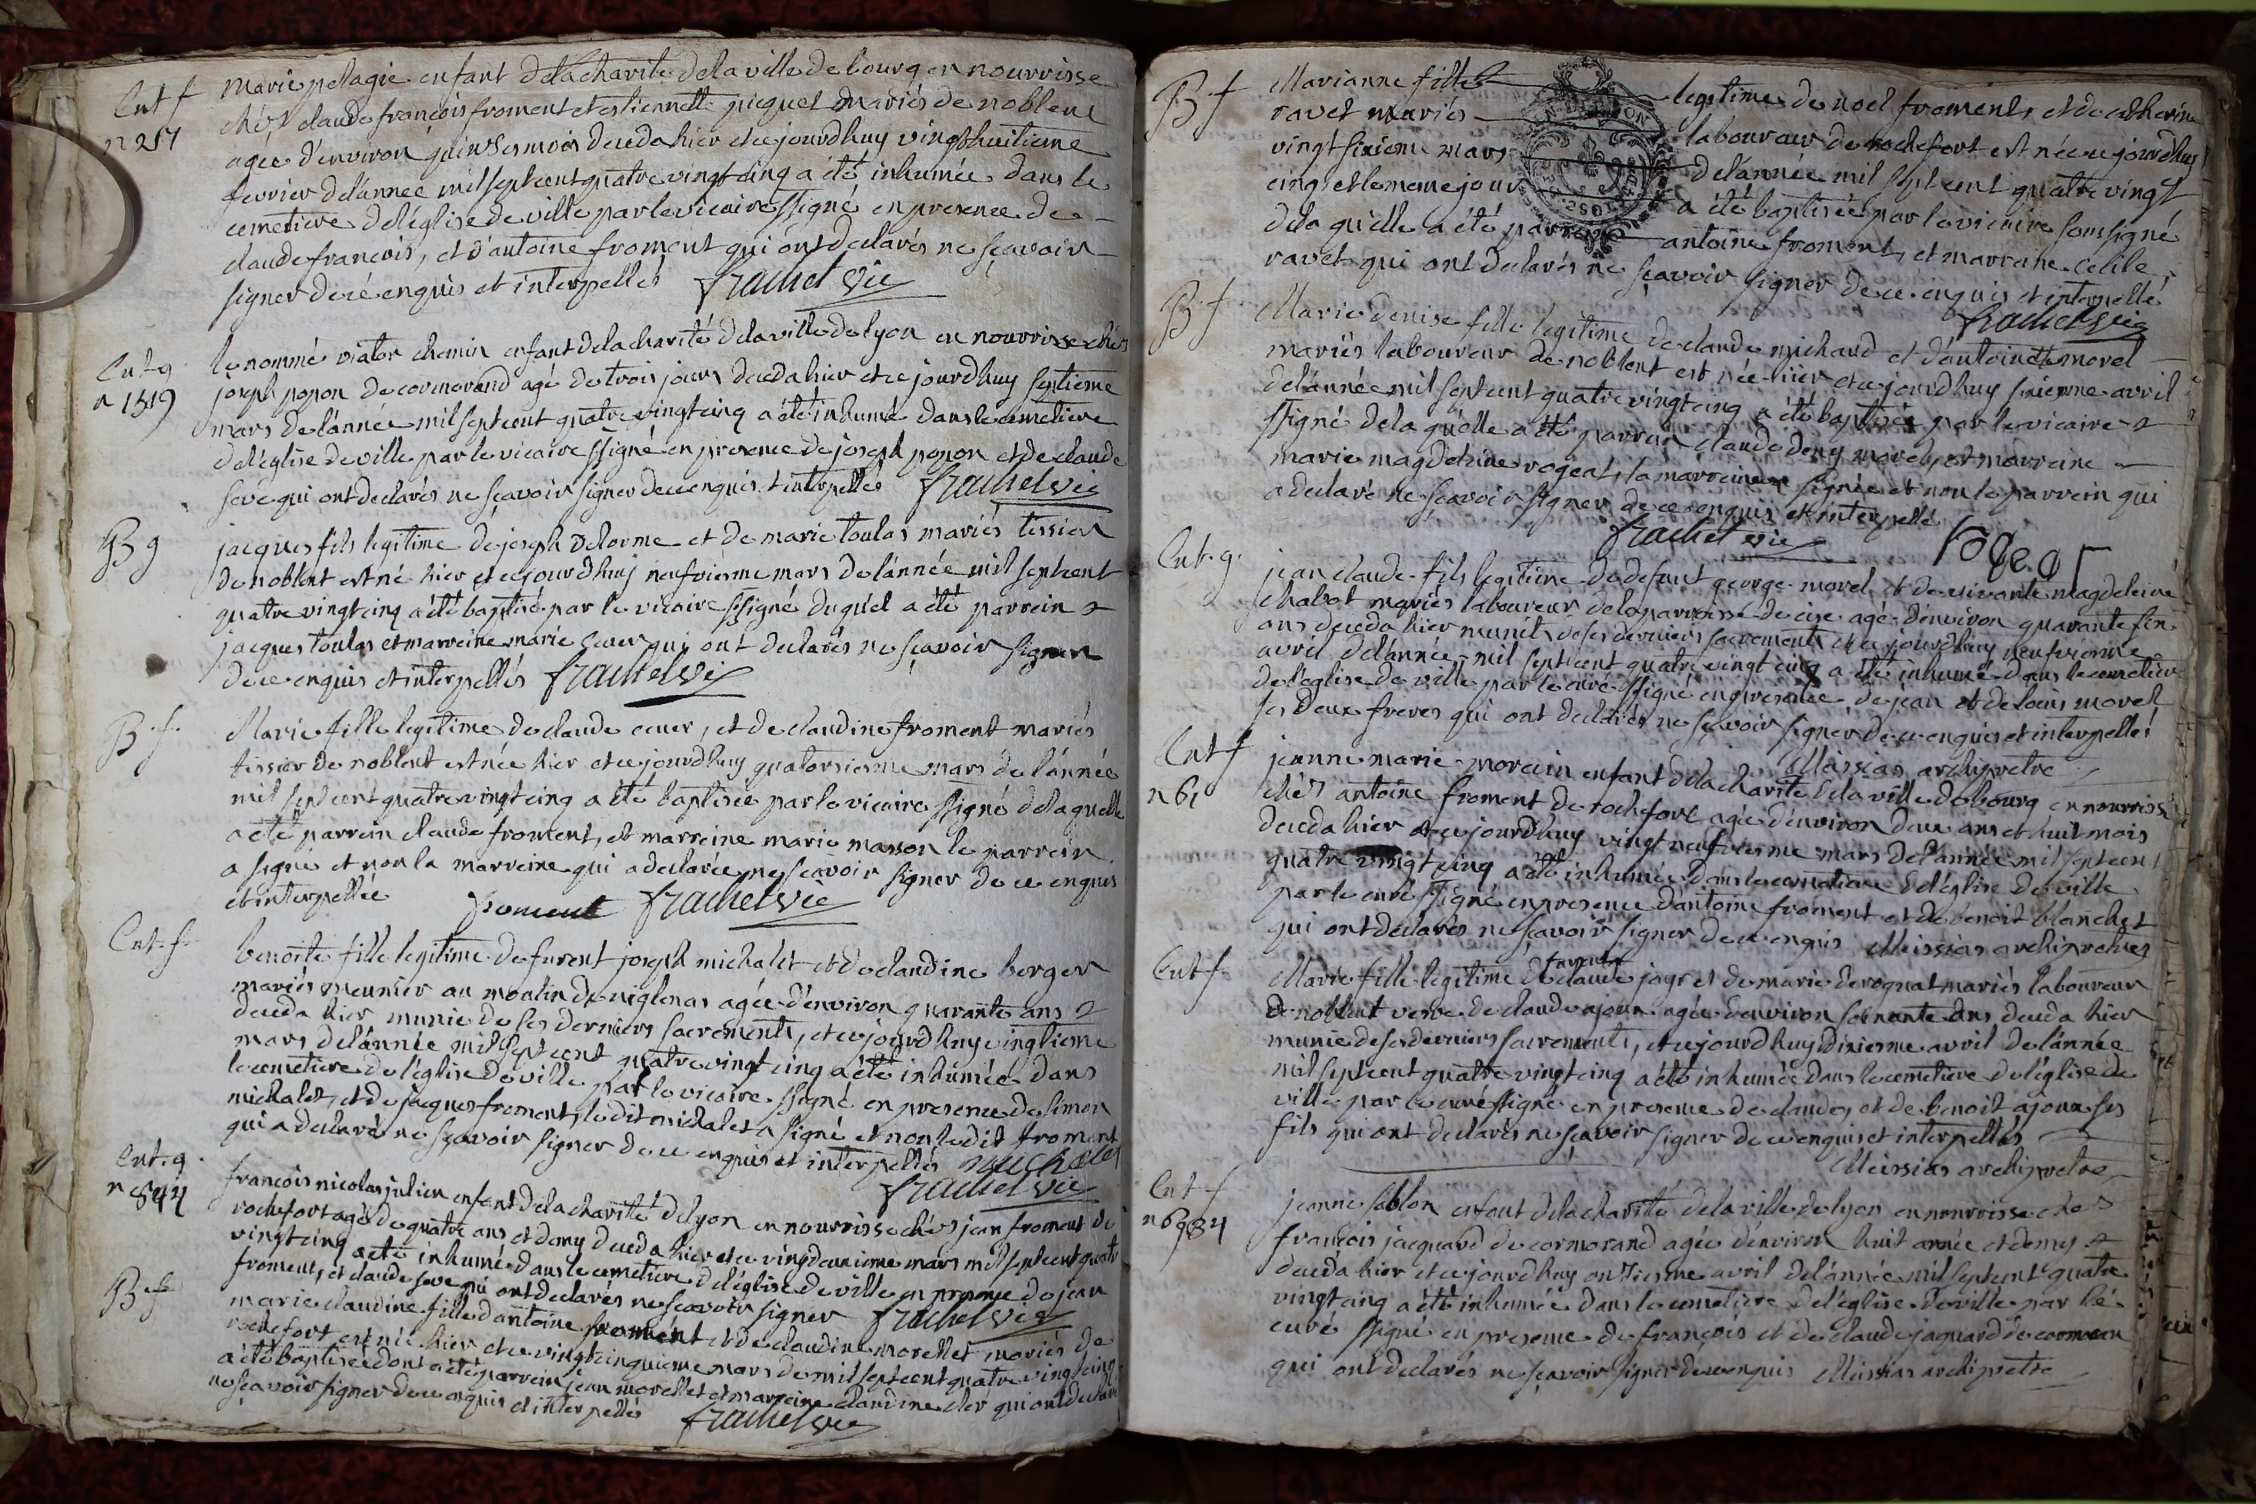 Ent f
n 257
Marie pelagie enfant de la charité de la ville de bourg en nourrisse
chés claude françois froment et estiennette piequet mariés de noblent
agée d'environ quinse mois deceda hier et ce jourd'huy vingthuitieme
fevrier de l'année mil sept cent quatre vingt cinq a été inhumée dans le
cemetiere de l'église de ville par le vicaire ssigné en presence de
claude francois, et d'antoine froment qui ont declarés ne sçavoir
signer de ce enquis et interpellés frachet vic
Ent g
n 1519
le nommé viator chemin enfant de la charité de la ville de lyon en nourrisse chés
joseph popon de cormorand agé de trois jours deceda hier et ce jourd'huy septieme
mars de l'année mil sept cent quatre vingt cinq a été inhumé dans le cemetiere
de l'église de ville par le vicaire ssigné en presence de joseph popon et de claude
seve qui ont declarés ne sçavoir signer de ce enquis et interpellés frachet vic
B g
jacques fils legitime de joseph delorme et de marie toulas mariés tissier
de noblent est né hier et ce jourd'huy neufvieme mars de l'année mil sept cent
quatre vingt cinq a été baptisé par le vicaire ssigné duquel a été parrein
jacques toulas et marreine marie cuer qui ont declarés ne sçavoir signer
de ce enquis et interpellés frachet vic
B. f.
Marie fille legitime de claude cuer, et de claudine froment mariés
tissier de noblent est née hier et ce jourd'huy quatorsieme mars de l'année
mil sept cent quatre vingt cinq a été baptisée par le vicaire ssigné de laquelle
a été parrein claude froment, et marreine marie masson le parrein
a signé et non la marreine qui a declarée ne sçavoir signer de ce enquis
et interpellée froment frachet vic
Ent. f.
benoite fille legitime de furent joseph michalet et de claudine berger
mariés meunier au moulin de niglenas agée d'environ quarante ans
deceda hier munie de ses derniers sacrements, et ce jourd'huy vingtieme
mars de l'année mil sept cent quatre vingt cinq a été inhumée dans
le cemetiere de l'église de ville par le vicaire ssigné en presence de simon
michalet, et de jacques froment, le dit michalet a signé et non le dit froment
qui a declaré ne sçavoir signer de ce enquis et interpellés michalet
frachet vic
Ent. g.
n 844
francois nicolas julien enfent de la charité de lyon en nourrisse chés jean froment de
rochefort agé de quatre ans et demy deceda hier et ce vingt deuxieme mars mil sept cent quatre
vingt cinq a été inhumé dans le cemetiere de l'église de ville en presence de jean
froment, et claude seve qui ont declarés ne sçavoir signer frachet vic
B. f.
marie claudine fille d'antoine froment et de claudine morellet mariés de
rochefort est née hier et ce vingt cinquieme mars de mil sept cent quatre vingt cinq
a été baptisée dont a été parrein jean morellet et marreine claudine cler qui ont declaré
ne sçavoir signer de ce enquis et interpellés frachet vic
B. f
Marianne fille legitime de noel froment, et de catherine
ravet mariés laboureur de rochefort est née ce jourd'huy
vingt sixieme mars de l'année mil sept cent quatre vingt
cinq et le meme jour a été baptisée par le vicaire soussigné
de laquelle a été parrein antoine froment, et marreine cecile
ravet qui ont declarés ne sçavoir signer de ce enquis et interpellé
frachet vic
B. f.
Marie denise fille legitime de claude michaud et d'antoinette morel
mariés laboureur de noblent est née hier et ce jourd'huy sixieme avril
de l'année mil sept cent quatre vingt cinq a été baptisée par le vicaire
ssigné de laquelle a été parrein claude deny morel, et marreine
marie magdeleine rogeat, la marreine a signée et non le parrein qui
a declaré ne sçavoir signer de ce enquis et interpellé
frachet vic rogeat
Ent. g.
jean claude fils legitime de defunt george morel et de vivante magdeleine
chabot mariés laboureur de la parroisse de cise agé d'environ quarante six
ans deceda hier munit de ses derniers sacrements et ce jourd'huy neufvieme
avril de l'année mil sept cent quatre vingt cinq a été inhumé dans le cemetiere
de l'église de ville par le curé ssigné en presence de jean et de louis morel
ses deux freres qui ont declarés ne sçavoir signer de ce enquis et interpellés
Meissias archipretre
Ent f
n 61
jeanne marie morain enfant de la charité de la ville de bourg en nourrisse
chés antoine froment de rochefort agée d'environ deux ans et huit mois
deceda hier et ce jourd'huy vingt neufvieme mars de l'année mil sept cent
quatre vingt cinq a été inhumée dans le cemetiere de l'église de ville
par le curé ssigné en presence d'antoine froment et de benoit blanchet
qui ont declarés ne sçavoir signer de ce enquis Meissias archipretre
Ent f.
Marie fille legitime de furent claude joyr et de marie derognat mariés laboureur
de noblent veuve de claude ajoux agée d'environ soixante ans deceda hier
munie de ses derniers sacrements, et ce jourd'huy dixieme avril de l'année
mil sept cent quatre vingt cinq a été inhumée dans le cemetiere de l'église de
ville par le curé ssigné en presence de claude, et de benoit ajoux ses
fils qui ont declarés ne sçavoir signer de ce enquis et interpellés
Meissias archipretre
Ent f
n 6984
jeanne sablon enfant de la charité de la ville de lyon en nourrisse chés
francois jacquard de cormorand agée d'environ huit année et demy
deceda hier et ce jourd'huy onzieme avril de l'année mil sept cent quatre
vingt cinq a été inhumée dans le cemetiere de l'église de ville par le
curé ssigné en presence de françois et de claude jaquard de cormoran
qui ont declarés ne sçavoir signer de ce enquis Meissias archipretre